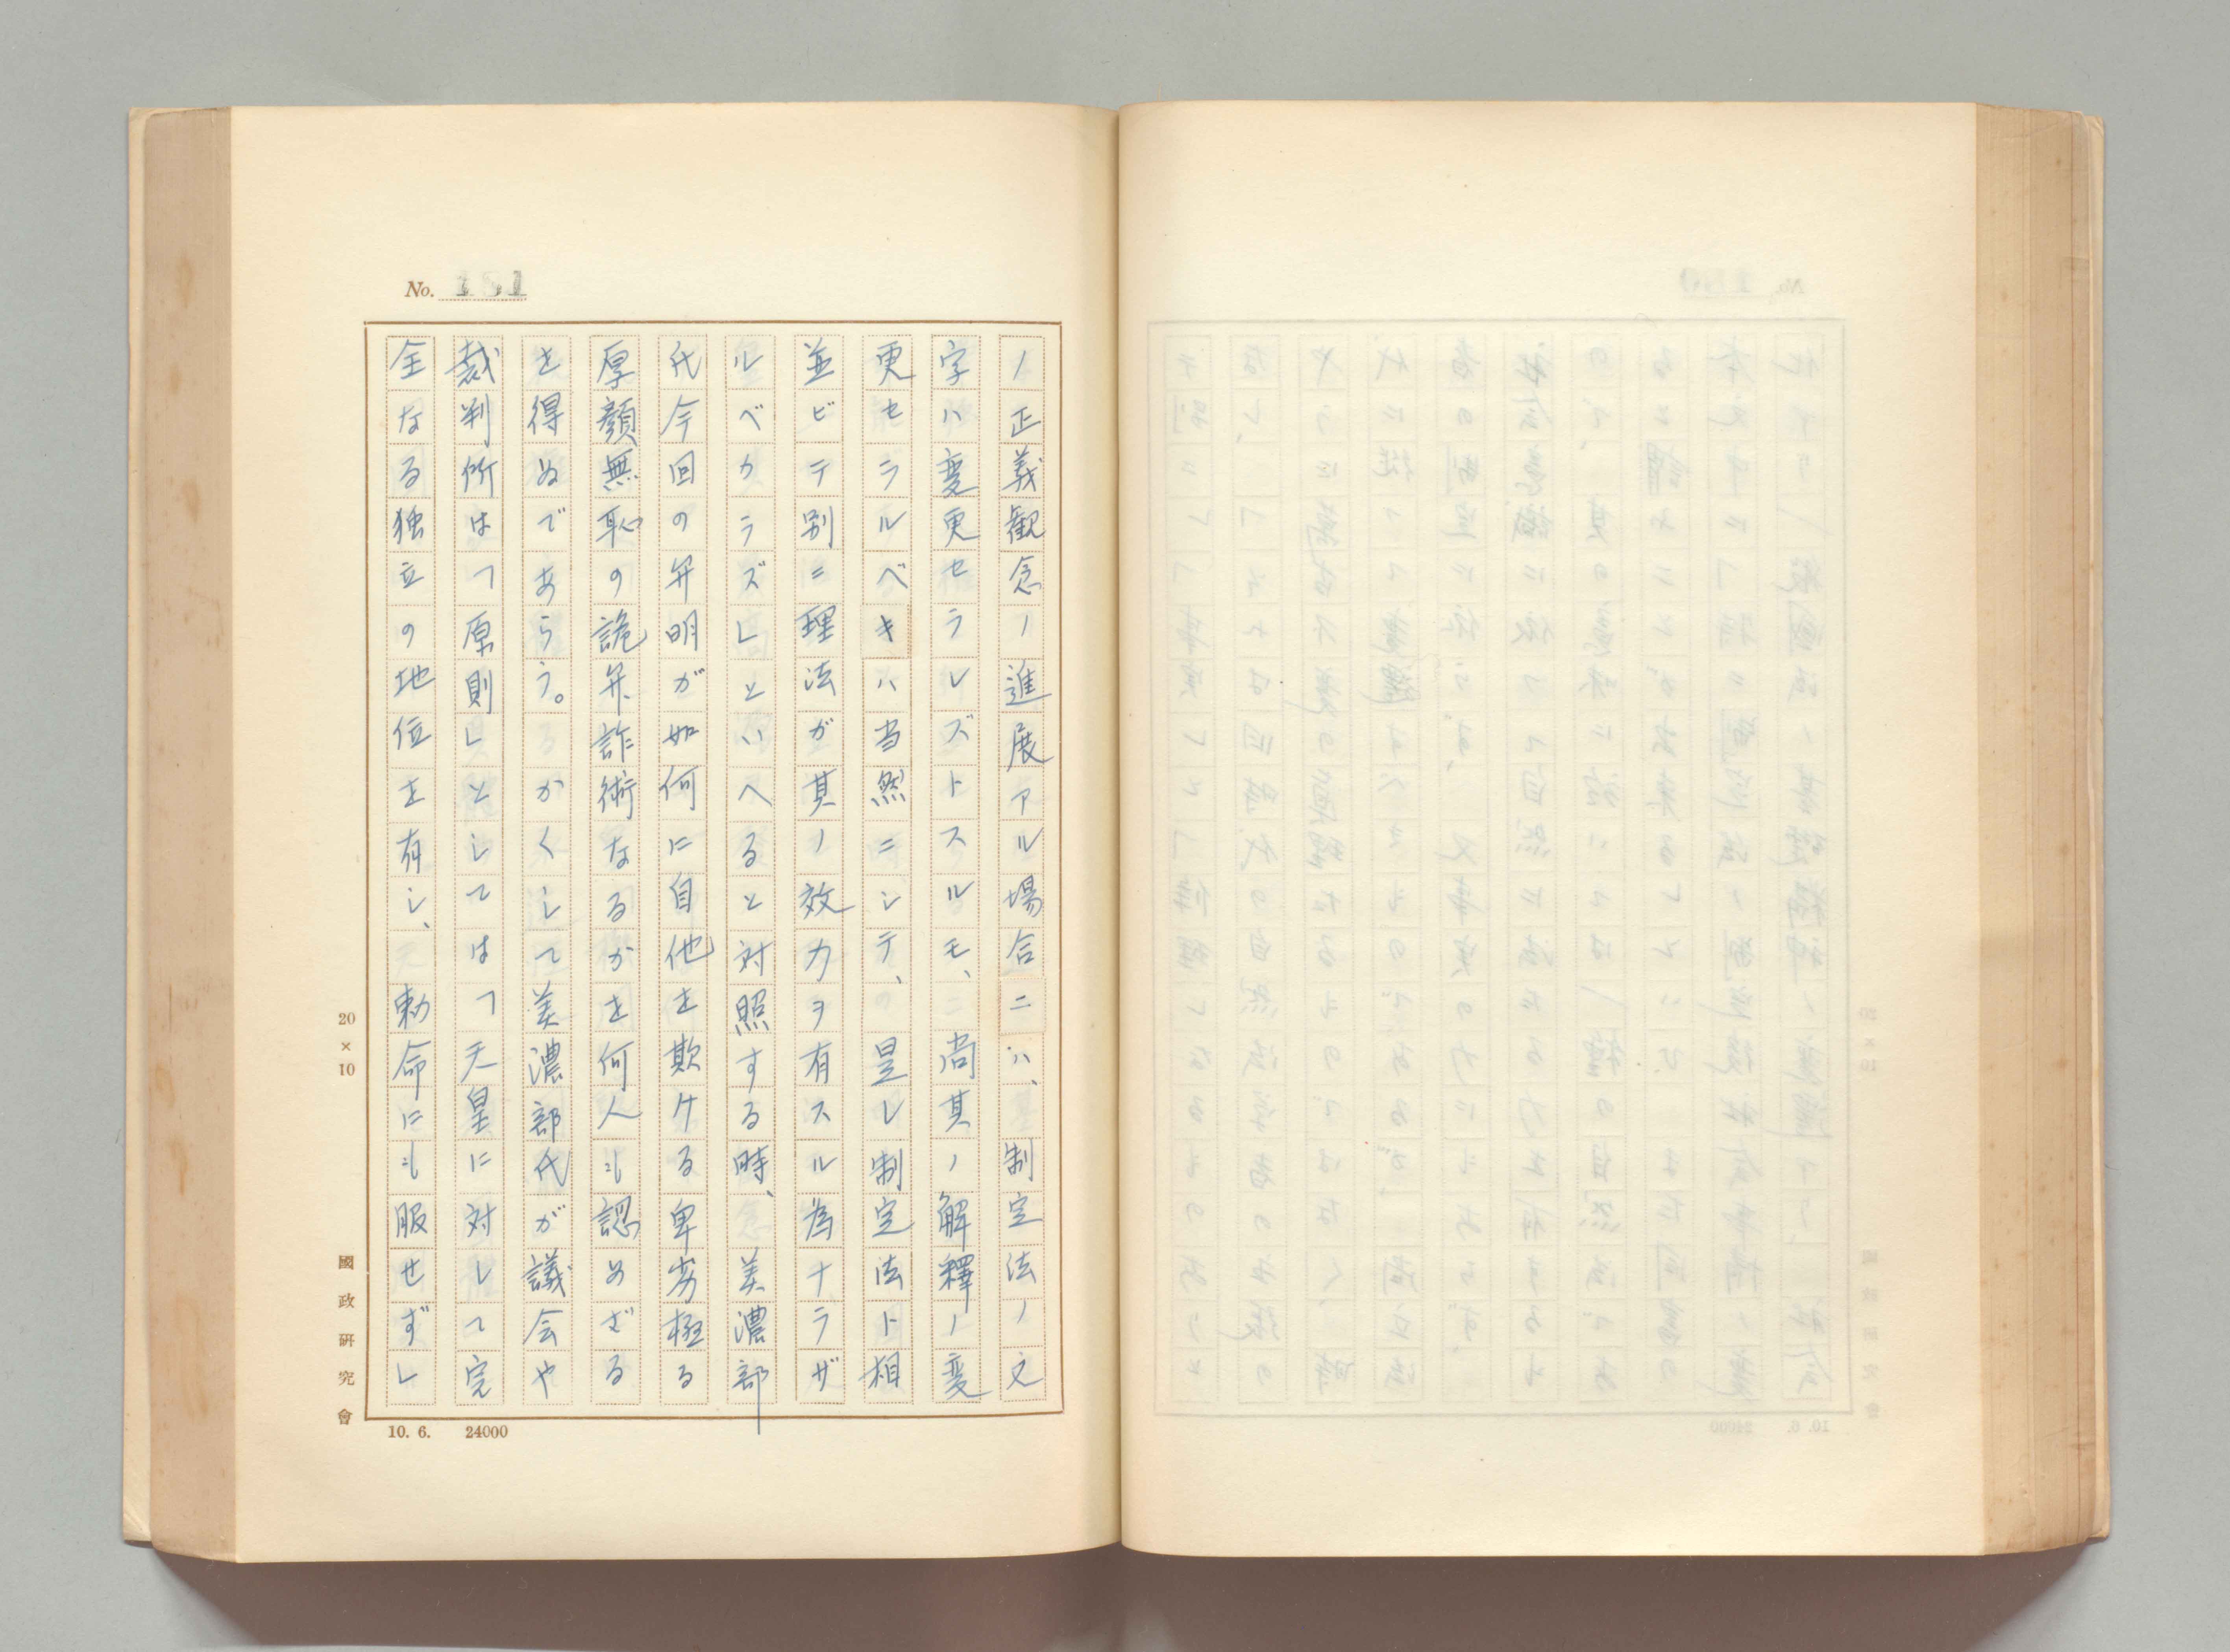 No. 181
ノ正義観念ノ進展アル場合ニハ、制定法ノ文
字ハ変更セラレズトスルモ、尚其ノ解釋ノ変
更セラルベキハ当然ニシテ、是レ制定法ト相
並ビテ別ニ理法ガ其ノ效力ヲ有スル為ナラザ
ルベカラズ」といへると対照する時、美濃部
氏今回の弁明が如何に自他を欺ける卑劣極る
厚顔無恥の詭弁詐術なるかを何人も認めざる
を得ぬであらう。かくして美濃部氏が議会や
裁判所は「原則」としては「天皇に対して完
全なる独立の地位を有し、勅命にも服せず」
20×10
國政研究會
10. 6. 24000